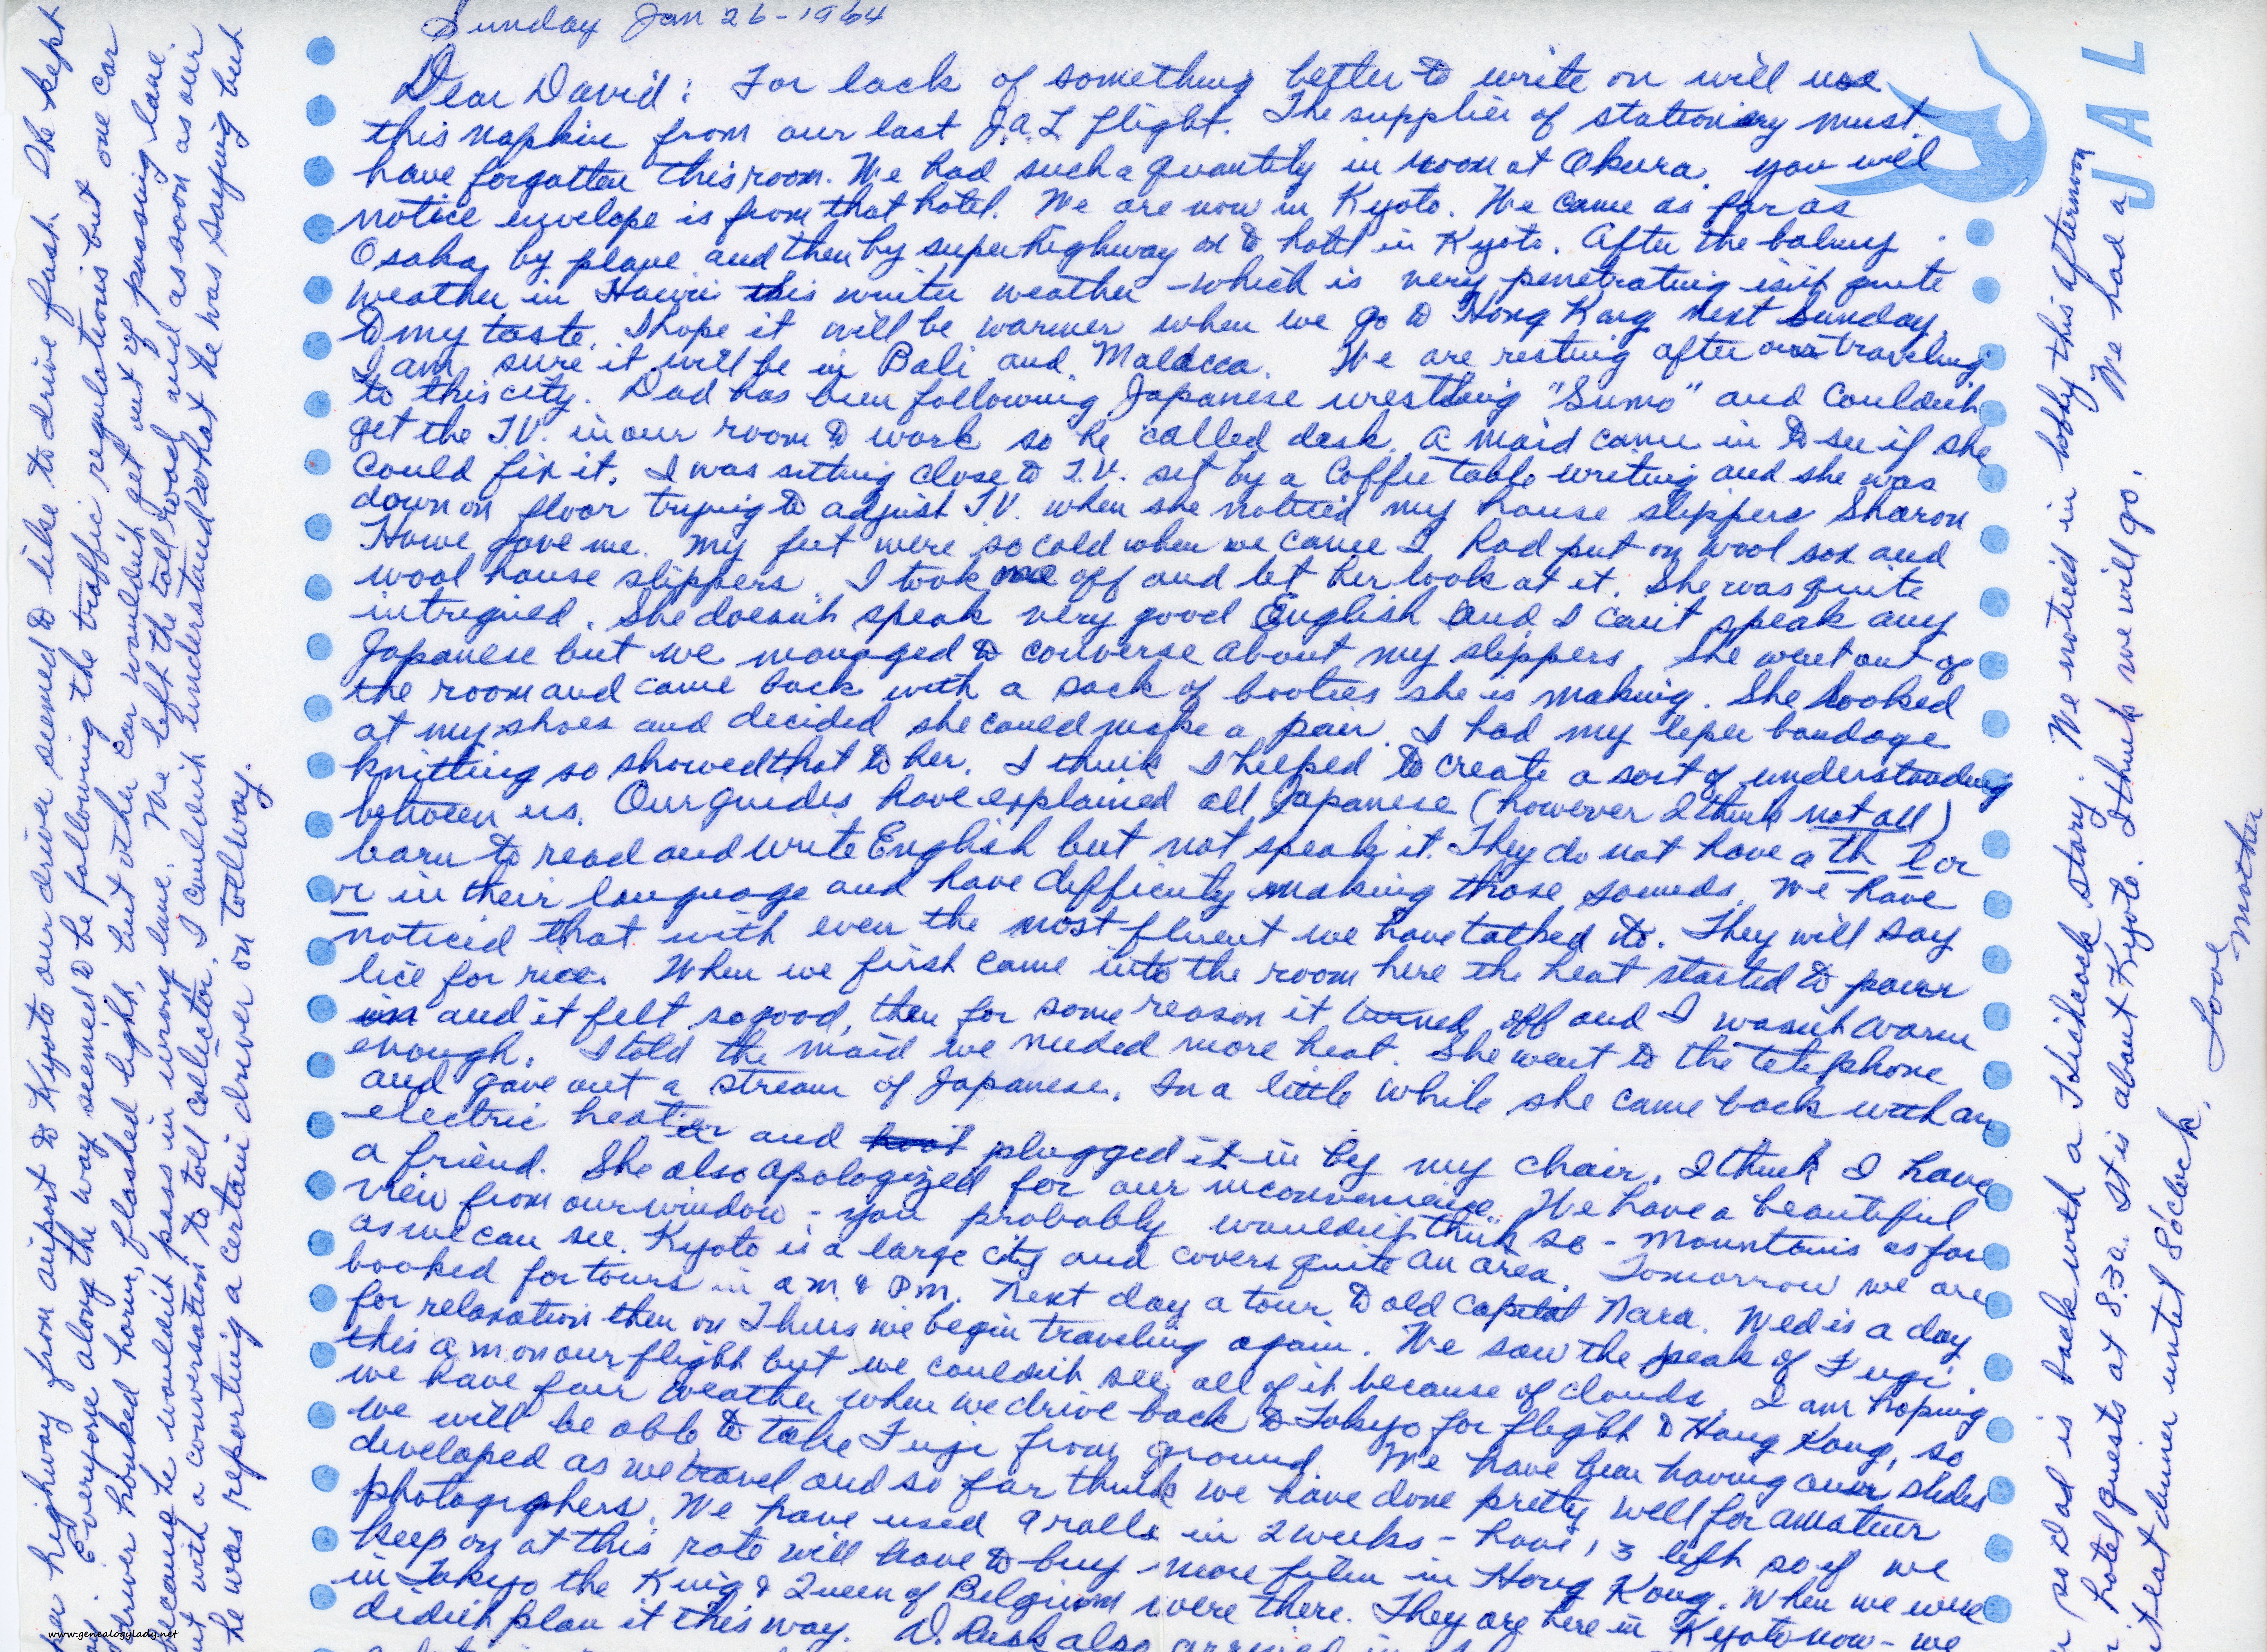 Sunday Jan 26-1964
JAL
Dear David: For lack of something better to write on will use
this napkin from our last J.A.L flight. The supplier of stationery must
have forgotten this room. We had such a quantity in room at Okura. you will
notice envelope is from that hotel. We are now in Kyoto. We came as far as
Osaka by plane and then by super highway on to hotel in Kyoto. After the balmy
weather in Hawii this winter weather - which is very penetrating isn't quite
to my taste. I hope it will be warmer when we go to Hong Kong next Sunday.
I am sure it will be in Bali and Malacca. We are resting after our traveling
to this city. Dad has been following Japanese wrestling "Sumo" and couldn't
get the T.V. in our room to work so he called desk. A maid came in to see if she
could fix it. I was sitting close to T.V. set by a coffee table writing and she was
down on floor trying to adjust T.V. when she noticed my house slippers Sharon
Howe gave me. My feet were so cold when we came I had put on wool sox and
wool house slippers. I took one off and let her look at it. She was quite
intrigued. She doesn't speak very good English and I can't speak any
Japanese but we managed to converse about my slippers. She went out of
the room and came back with a sack of booties she is making. She looked
at my shoes and decided she could make a pair. I had my leper bandage
knitting so showed that to her. I think I helped to create a sort of understanding
between us. Our guides have explained all Japanese (however I think not all)
learn to read and write English but not speak it. They do not have a th l or
r in their language and have difficulty making those sounds. We have
noticed that with even the most fluent we have talked to. They will say
lice for rice. When we first came into the room here the heat started to pour
in and it felt so good, then for some reason it turned off and I wasn't warm
enough. I told the maid we needed more heat. She went to the telephone
and gave out a stream of Japanese. In a little while she came back with an
electric heater and plugged it in by my chair. I think I have
a friend. She also apologized for our inconvenience. We have a beautiful
view from our window - you probably wouldn't think so - mountains as far
as we can see. Kyoto is a large city and covers quite an area. Tomorrow we are
booked for tours in a m & P.m. Next day a tour to old capital Nara. Wed is a day
for relaxation then on Thurs we begin traveling again. We saw the peak of Fugi
this a m on our flight but we couldn't see all of it because of clouds. I am hoping
we have fair weather when we drive back to Tokyo for flight to Hong Kong, so
we will be able to take Fugi from ground. We have been having our slides
developed as we travel and so far think we have done pretty well for amateur
photographers. We have used 9 rolls in 2 weeks - have 13 left so if we
keep on at this rate will have to buy more film in Hong Kong. When we were
in Tokyo the King & Queen of Belgium were there. They are here in Kyoto now - we
didn't plan it this way. D. Rusk also arrived in
er highway from airport to Kyoto our driver seemed to like to drive fast. He kept
Everyone along the way seemed to be following the traffic regulations but one car
driver honked horn, flashed light, but other car wouldn't get out of passing lane.
because he wouldn't pass in wrong lane. We left the toll road and as soon as our
with a conversation to toll collector. I couldn't understand what he was saying but
he was reporting a certain driver on tollway.
so Dad is back with a Hichcock story. We noticed in lobby this afternoon
hotel guests at 8:30. It is about Kyoto. I think we will go. We had a
eat dinner until 8 o'clock.
Love
Mother
www.genealogylady.net